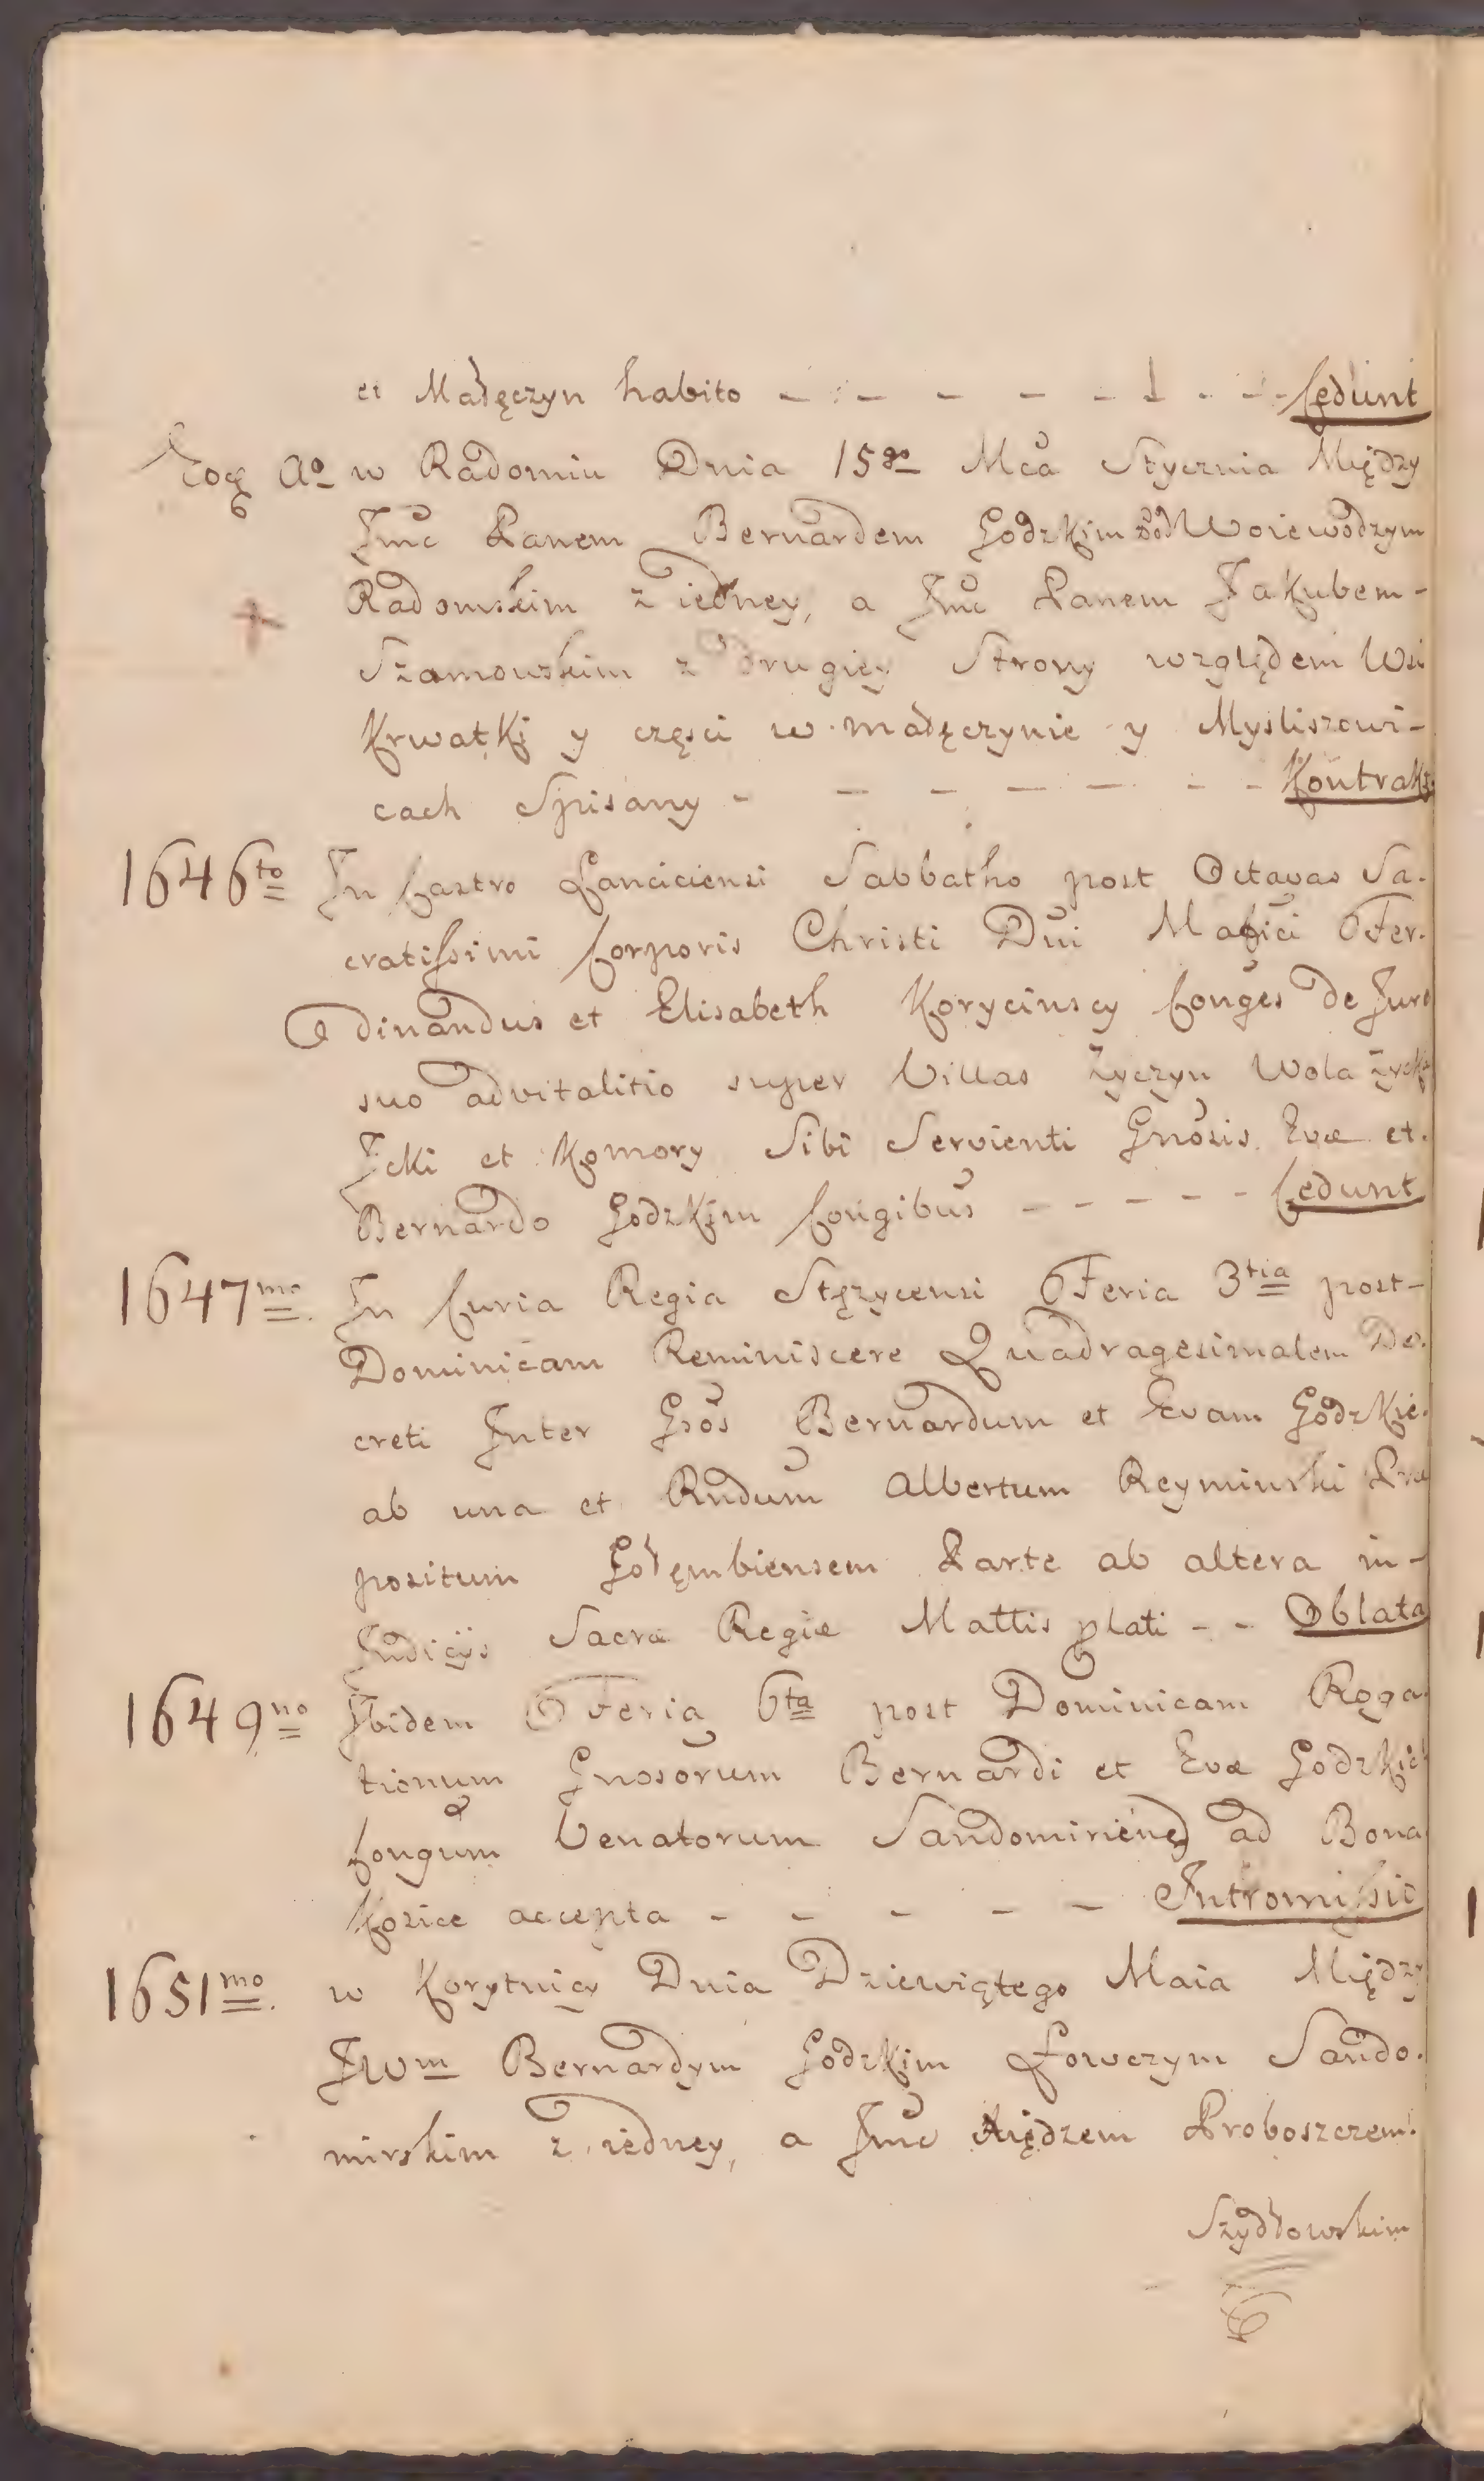 et Małęczyn habito - - - - - - - - Cedunt
Eoq Ao w Radomiu Dnia 15go Mca Stycznia Między
Jmc Panem Bernardem Godzkim Pod Woiewodzym
Radomskim z iedney, a Jmc Panem Jakubem -
Szamowskim z drugiey Strony względem Wsi
Krwatki y częsci w małęczynie y Mysliszowi-
cach Spisany - - - - - - - Kontrakt
1646to In Castro Lanciciensi Sabbatho post Octavas Sa-
cratissimi Corporis Christi Dni Mafici Fer-
dinandus et Elisabeth Korycinscy Conges de Jure
suo advitalitio super Villas Życzyn Wola Życka
Jcki et Komory Sibi Servienti Gnosis Evæ et
Bernardo Godzkim Congibus - - - - - Cedunt
1647mo In Curia Regia Stężycensi Feria 3tia post -
Dominicam Reminiscere Quadragesimalem De-
creti Inter Gsos Bernardum et Evam Godzkie
ab una et Rndum Albertum Reyminski Præ
positum Gołęmbiensem Parte ab altera in -
Judicijs Sacræ Regiæ Mattis plati - - Oblata
1649no Ibidem Feria 6ta post Dominicam Roga-
tionum Gnosorum Bernardi et Evæ Godzkich
Congum Venatorum Sandomirien ad Bona
Kozice accepta - - - - - Intromissio
1651mo w Korytnicy Dnia Dziewiątego Maia Między
JWm Bernardym Godzkim Łowczym Sando-
mirskim z iedney, a Jmc Xiędzem Proboszczem
Szydłowskim